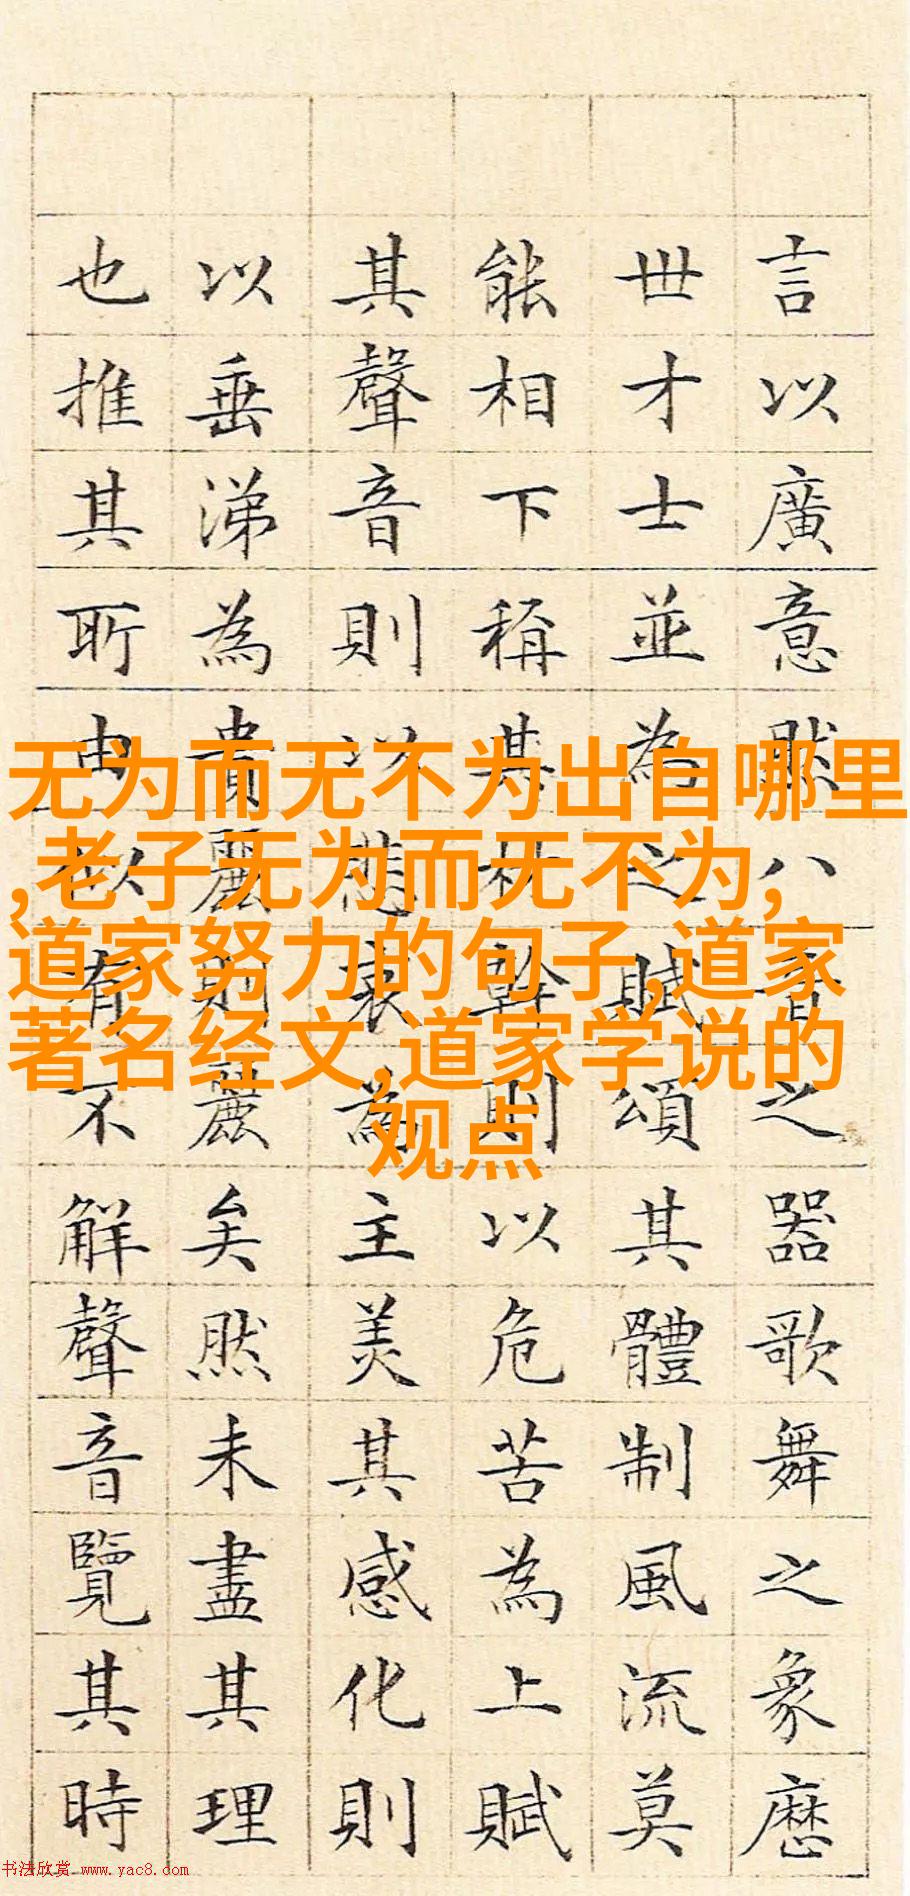 言以廣意然八音之器歌舞之象歷
世才士並為之賦頌其體制風流莫
能相下稱其材幹則以危苦為上賦
其聲音則以悲哀為主美其感化則
以垂涕為貴麗則麗矣然未盡其理
也推其所由似有不解聲音覽其時
无为而无不为出自哪里
,老子无为而无不为,
道家努力的句子,道家
著名经文,道家学说的
观点
书法欣赏 www.yac8.com